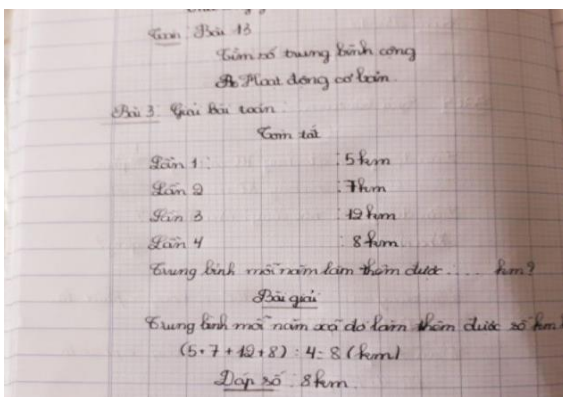 Toán: Bài 13
Tìm số trung bình cộng
A. Hoạt động cơ bản.
Bài 3: Giải bài toán:
Tóm tắt
Lần 1: : 5 km
Lần 2 : 7 km
Lần 3 : 12 km
Lần 4 : 8 km
Trung bình mỗi năm làm thêm được .... km?
Bài giải:
Trung bình mỗi năm xã đó làm thêm được số km
(5+7+12+8) : 4= 8 (km)
Đáp số : 8 km.